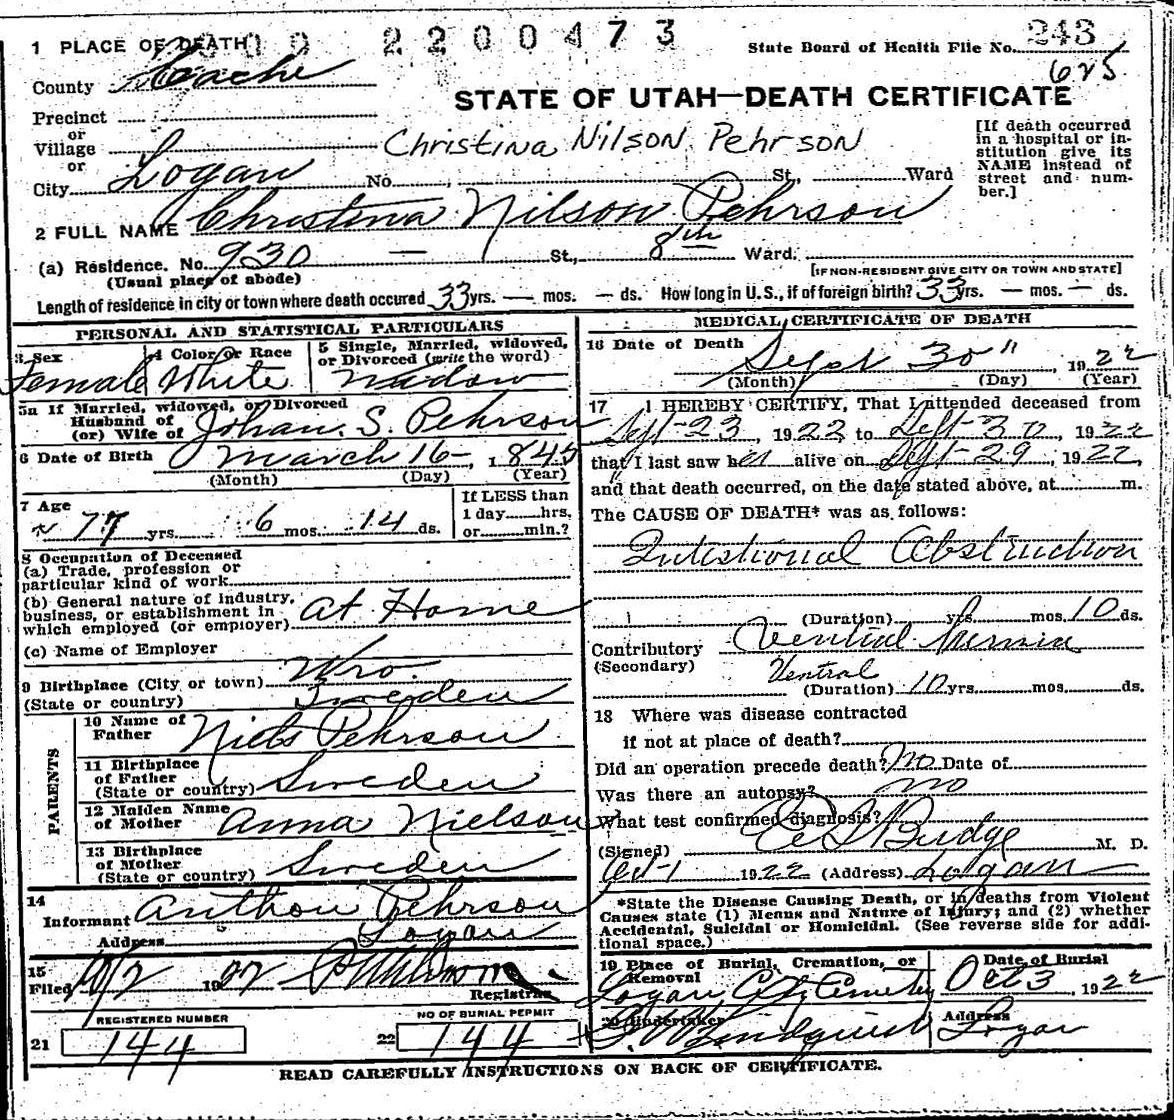 1 PLACE OF DEATH 2200473 State Board of Health File No. 243
County Cache 625
STATE OF UTAH—DEATH CERTIFICATE
Precinct
or
Village
or
Christina Nilson Pehrson
City Logan No. St., Ward
[If death occurred in a hospital or institution give its NAME instead of street and number.]
2 FULL NAME Christina Nilson Pehrson
(a) Residence. No. 930 — St., 8th Ward.
(Usual place of abode) [IF NON-RESIDENT GIVE CITY OR TOWN AND STATE]
Length of residence in city or town where death occured 33 yrs. — mos. — ds. How long in U.S., if of foreign birth? 33 yrs. — mos. — ds.
PERSONAL AND STATISTICAL PARTICULARS
3 Sex 4 Color or Race 5 Single, Married, widowed, or Divorced (write the word)
Female White Widow
5a If Married, widowed, or Divorced
Husband of
(or) Wife of Johan. S. Pehrson
6 Date of Birth March 16 — , 1845
(Month) (Day) (Year)
7 Age If LESS than
77 yrs. 6 mos. 14 ds. 1 day hrs.
or min.?
8 Occupation of Deceased
(a) Trade, profession or
particular kind of work
(b) General nature of industry,
business, or establishment in
which employed (or employer) at Home
(c) Name of Employer
9 Birthplace (City or town) Wro.
(State or country) Sweden
PARENTS
10 Name of
Father Niels Pehrson
11 Birthplace
of Father
(State or country) Sweden
12 Maiden Name
of Mother Anna Nielson
13 Birthplace
of Mother
(State or country) Sweden
14
Informant Anthon Pehrson
Address Logan
15
Filed 10/2 1922
Registrar
REGISTERED NUMBER NO OF BURIAL PERMIT
21 144 22 144
MEDICAL CERTIFICATE OF DEATH
16 Date of Death Sept 30" 1922
(Month) (Day) (Year)
17 I HEREBY CERTIFY, That I attended deceased from
Sept-23, 1922 to Sept-30, 1922
that I last saw her alive on Sept-29, 1922,
and that death occurred, on the date stated above, at m.
The CAUSE OF DEATH* was as follows:
Intestional Obstruction
(Duration) yrs. mos. 10 ds.
Contributory Ventral hernia
(Secondary) Ventral
(Duration) 10 yrs. mos. ds.
18 Where was disease contracted
if not at place of death?
Did an operation precede death? No Date of
Was there an autopsy? no
What test confirmed diagnosis?
(Signed) Budge M. D.
Oct-1 1922 (Address) Logan
*State the Disease Causing Death, or in deaths from Violent
Causes state (1) Menus and Nature of Injury; and (2) whether
Accidental, Suicidal or Homicidal. (See reverse side for addi-
tional space.)
19 Place of Burial, Cremation, or Date of Burial
Removal
Logan City Cemetery Oct 3, 1922
20 Undertaker Address
Lindquist Logan
READ CAREFULLY INSTRUCTIONS ON BACK OF CERTIFICATE.